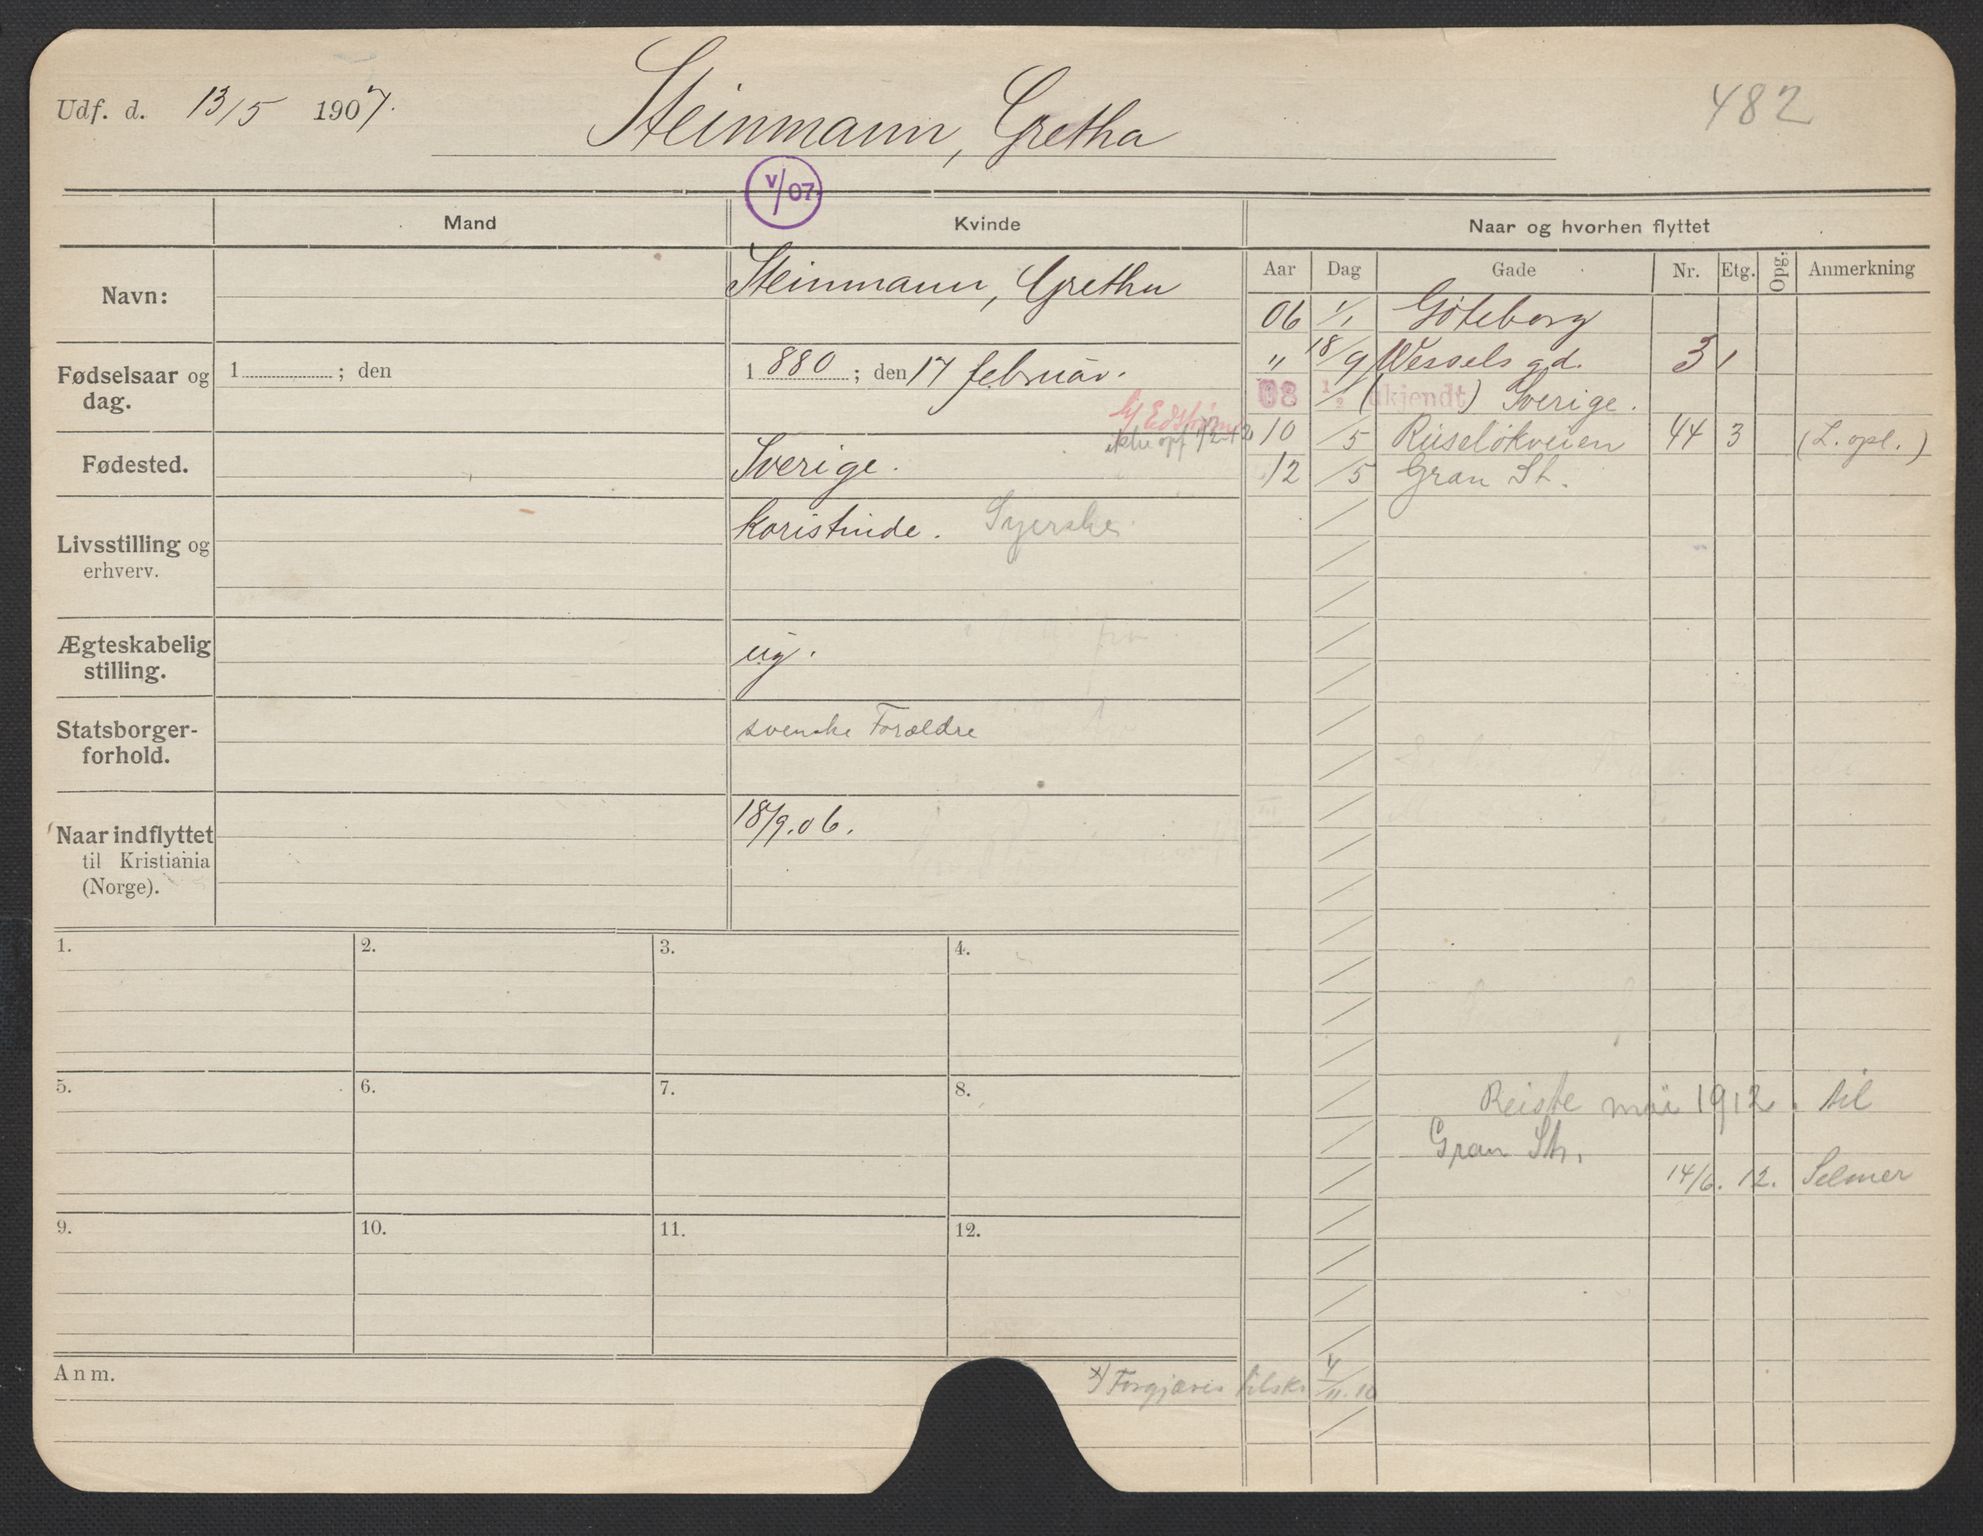 Udf. d. 13/5 1907.
Steinmann, Gretha
482
V/07
Mand
Kvinde
Naar og hvorhen flyttet
Aar Dag Gade Nr. Etg. Opg. Anmerkning
Navn:
Steinmann, Gretha
06 1/1 Göteborg
Fødselsaar og dag.
1 ; den
1880 ; den 17 februar.
" 18/9 Wessels gd. 3 1
08 1/2 (ukjendt) Sverige.
10 /5 Ruseløkveien 44 3 (L. opl.)
12 /5 Gran St.
Fødested.
Sverige.
Livsstilling og erhverv.
Koristinde. Syerske
Ægteskabelig stilling.
ug.
Statsborger-forhold.
svenske Forældre
Naar indflyttet til Kristiania (Norge).
18/9.06.
1. 2. 3. 4.
5. 6. 7. 8.
Reiste mai 1912. til
Gran St.
14/6. 12. Selmer
9. 10. 11. 12.
Anm.
x) Forgjæves tilsk. 4/11.10